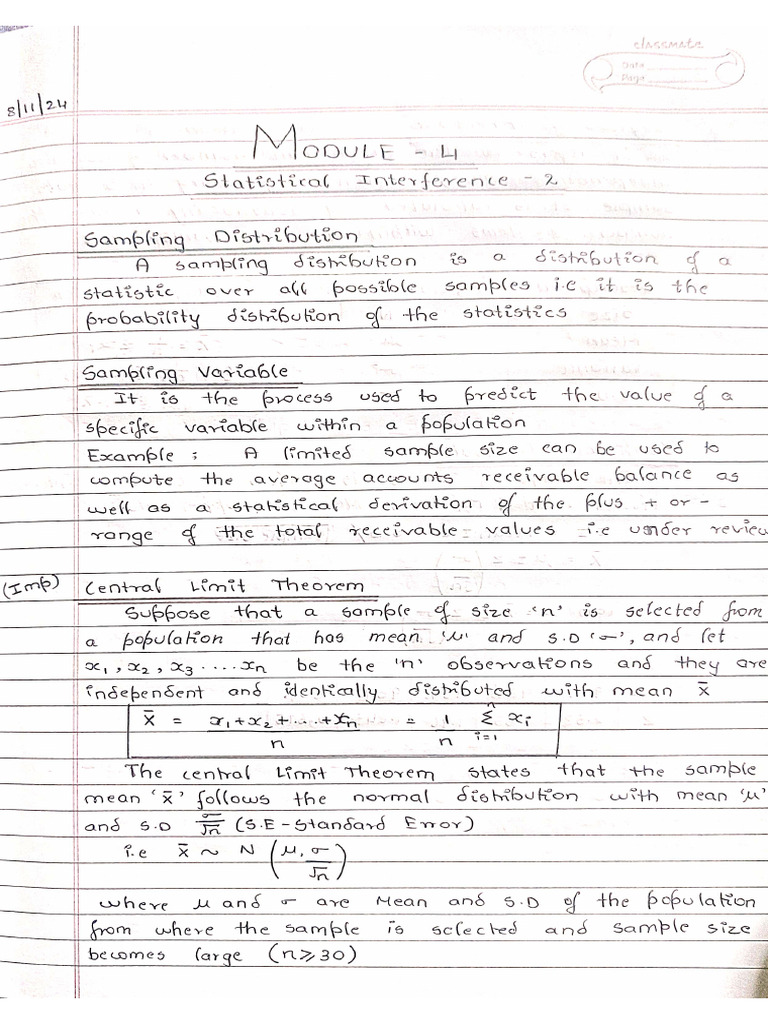 classmate
Date
Page
8/11/24
MODULE - 4
Statistical Interference - 2
Sampling Distribution
A sampling distribution is a distribution of a
statistic over all possible samples i.e it is the
probability distribution of the statistics
Sampling Variable
It is the process used to predict the value of a
specific variable within a population
Example : A limited sample size can be used to
compute the average accounts receivable balance as
well as a statistical derivation of the plus + or -
range of the total receivable values i.e under review
(Imp) Central Limit Theorem
Suppose that a sample of size 'n' is selected from
a population that has mean 'μ' and S.D 'σ', and let
x₁, x₂, x₃ .....xn be the 'n' observations and they are
independent and identically distributed with mean x̄
x̄ = x₁+x₂+...+xn / n = 1/n Σ i=1 n xi
The central Limit Theorem states that the sample
mean 'x̄' follows the normal distribution with mean 'μ'
and S.D σ/√n (S.E - Standard Error)
i.e x̄ ~ N (μ, σ/√n)
where μ and σ are Mean and S.D of the population
from where the sample is selected and sample size
becomes large (n≥30)